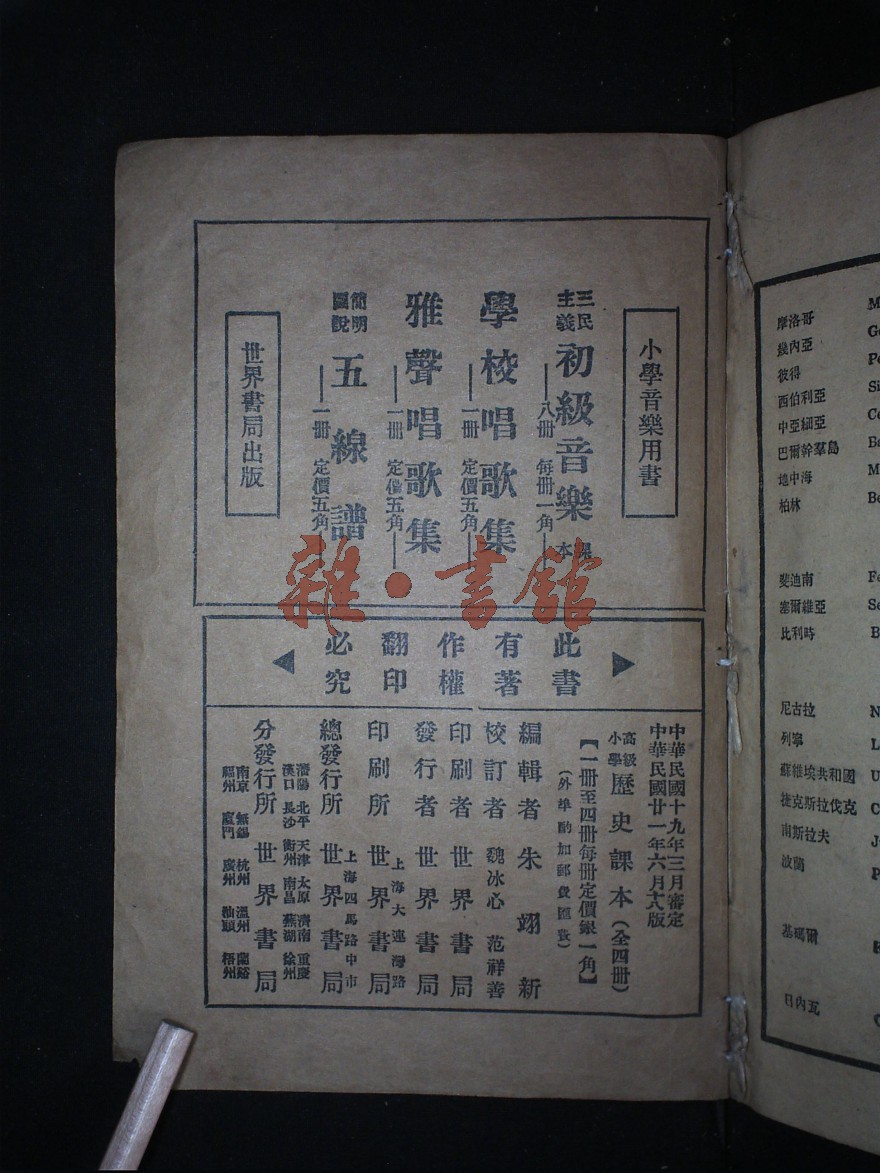 小學音樂用書
三民主義 初級音樂 課本
——八冊 每冊一角——
學校唱歌集
——一冊 定價五角——
雅聲唱歌集
——一冊 定價五角——
簡明圖說 五線譜
——一冊 定價五角——
世界書局出版
雜·書館
此書
有著
作權
翻印
必究
中華民國十九年三月審定
中華民國廿一年六月十八版
高級小學 歷史課本(全四冊)
【一冊至四冊每冊定價銀一角】
(外埠酌加郵費匯費)
編輯者 朱翊新
校訂者 魏冰心 范祥善
印刷者 世界書局
發行者 世界書局
上海大連灣路
印刷所 世界書局
上海四馬路中市
總發行所 世界書局
瀋陽 北平 天津 太原 濟南 重慶
漢口 長沙 衡州 南昌 蕪湖 徐州
分發行所 世界書局
南京 無錫 杭州 溫州 蘭谿
福州 廈門 廣州 汕頭 梧州
摩洛哥 M
幾內亞 Ge
彼得 Pe
西伯利亞 Si
中亞細亞 Ce
巴爾幹羣島 Ba
地中海 M
柏林 Be
斐迪南 Fe
塞爾維亞 Se
比利時 B
尼古拉 N
列寧 L
蘇維埃共和國 U
捷克斯拉伐克 C
南斯拉夫 J
波蘭 P
基瑪爾
日內瓦